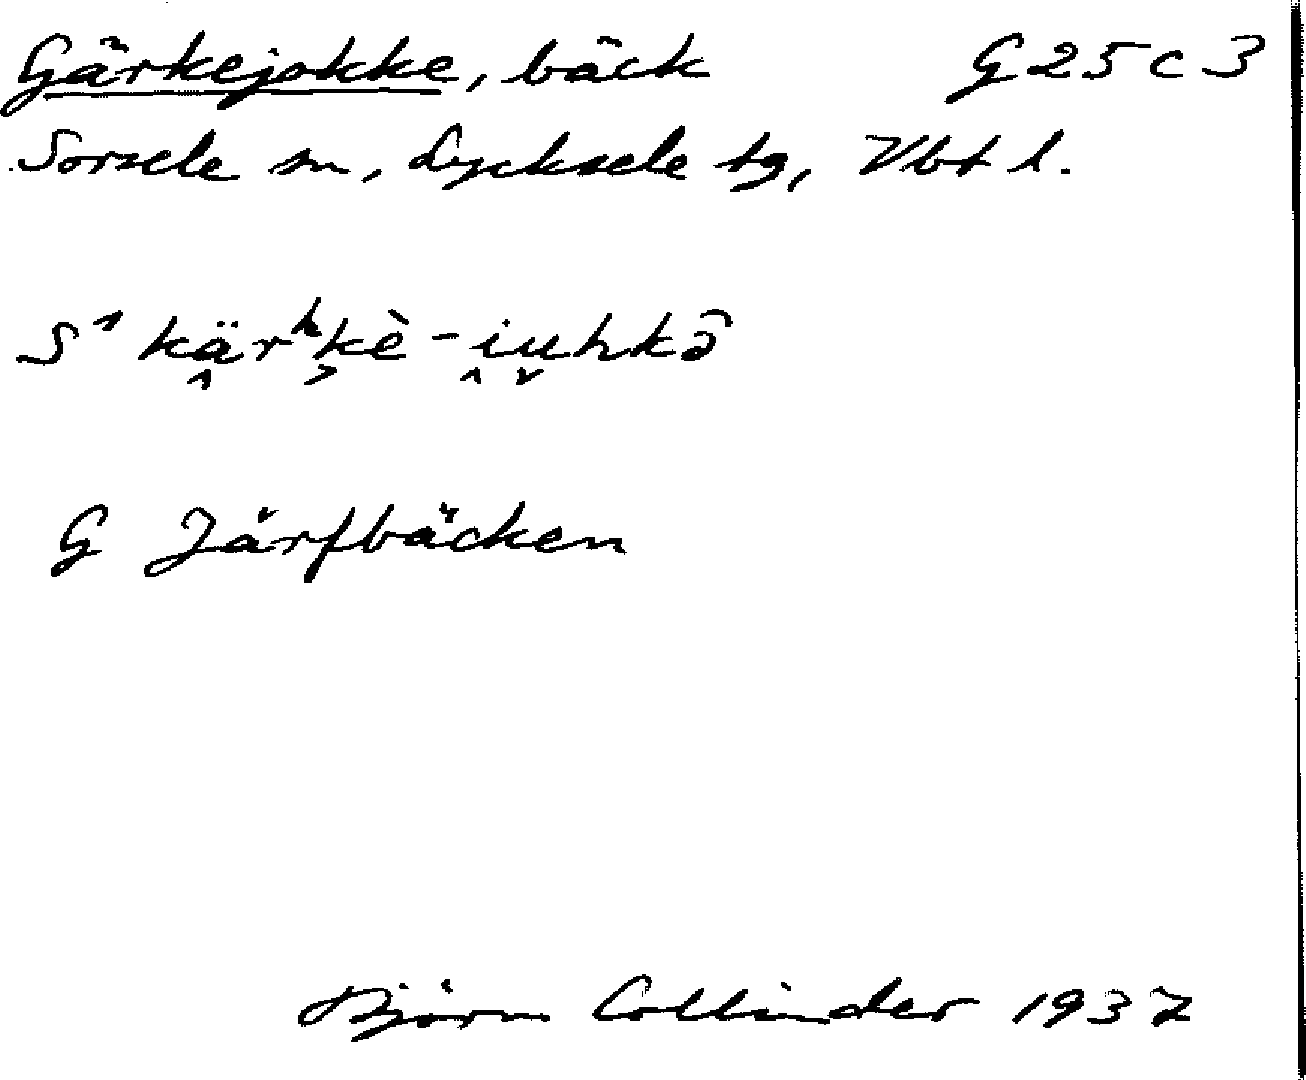 Gärkejokke, bäck G 25 c 3
Sorsele sn, Lycksele tg, Vbt l.
S¹ kä̭rʰk̬è-i̭u̬hkə̂
G Järfbäcken
Björn Collinder 1937